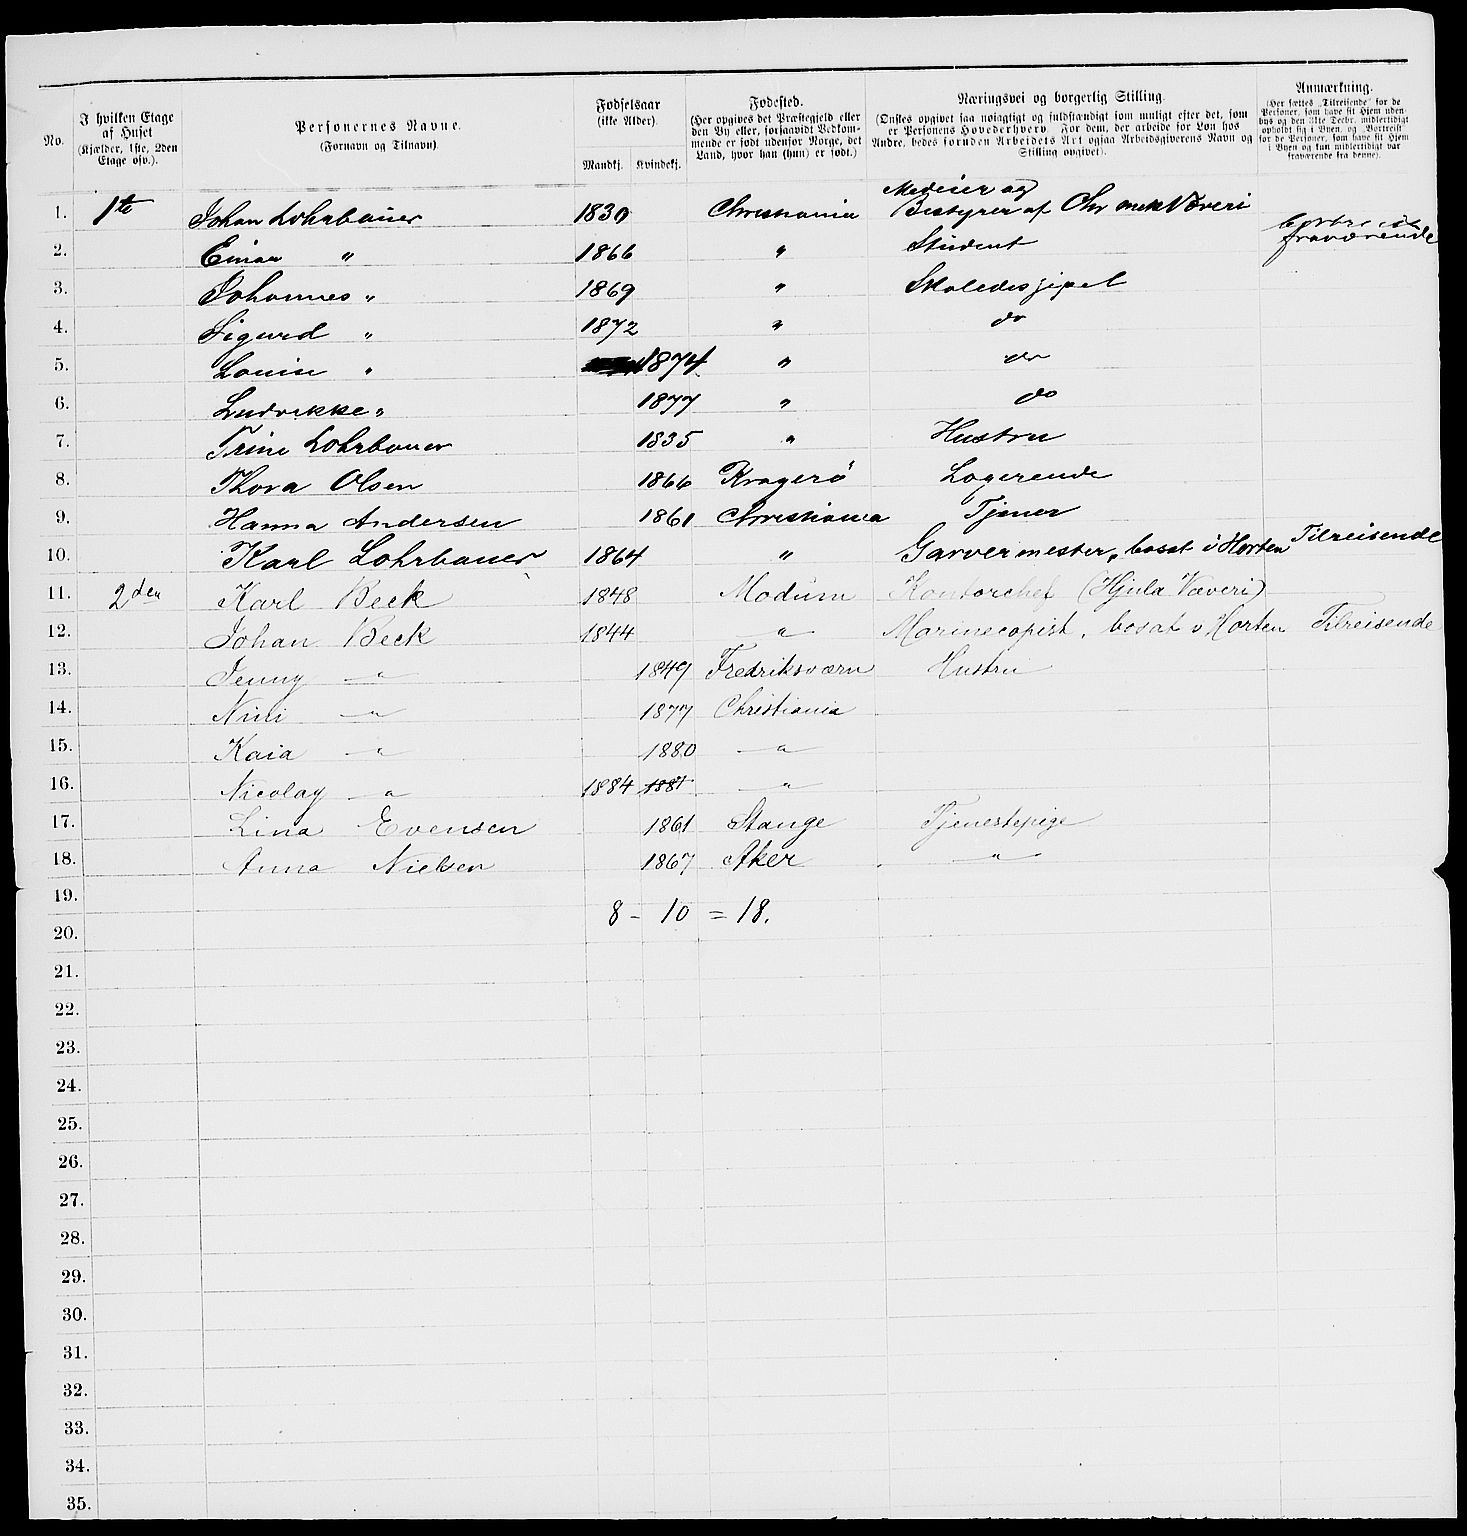 No.
I hvilken Etage af Huset (Kjælder, 1ste, 2den Etage osv.).
Personernes Navne. (Fornavn og Tilnavn)
Fødselsaar (ikke Alder). Mandkj. Kvindekj.
Fødested. (Her opgives det Præstegjeld eller den By eller, forsaavidt Vedkommende er født udenfor Norge, det Land, hvor han (hun) er født.)
Næringsvei og borgerlig Stilling. (Ønskes opgivet saa nøiagtigt og fuldstændigt som muligt efter det, som er Personens Hovederhverv. For dem, der arbeide for Løn hos Andre, bedes foruden Arbeidets Art ogsaa Arbeidsgiverens Navn og Stilling opgivet).
Anmærkning. (Her sættes „Tilreisende" for de Personer, som have sit Hjem udenbys og den 31te Decbr. midlertidigt opholdt sig i Byen, og „Bortreist" for de Personer, som have sit Hjem i Byen og kun midlertidigt var fraværende fra denne).
1. 1te Johan Lohrbauer 1830 Christiania Medeier og Bestyrer af Chr mek Væveri
2. Einar " 1866 " Student bortreist fraværende
3. Johannes " 1869 " Skoledisipel
4. Sigurd " 1872 " do
5. Louise " 1874 " do
6. Ludvikke " 1877 " do
7. Trine Lohrbauer 1835 " Hustru
8. Thora Olsen 1866 Kragerö Logerende
9. Hanna Andersen 1861 Christiania Tjener
10. Karl Lohrbauer 1864 " Garvermester, bosat i Horten Tilreisende
11. 2den Karl Beck 1848 Modum Kontorchef (Hjula Væveri)
12. Johan Beck 1844 " Marinecopist, bosat i Horten Tilreisende
13. Jenny " 1849 Fredriksværn Hustru
14. Nini " 1877 Christiania
15. Kaia " 1880 "
16. Nicolay " 1884 1884 "
17. Lina Evensen 1861 Stange Tjenestepige
18. Anna Nielsen 1867 Aker "
19.
8 - 10 = 18.
20.
21.
22.
23.
24.
25.
26.
27.
28.
29.
30.
31.
32.
33.
34.
35.